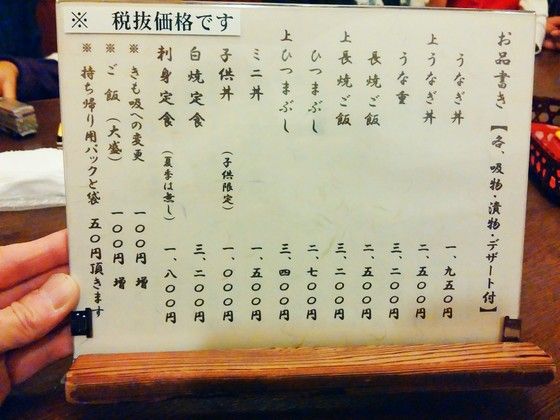 ※ 税抜価格です
お品書き【各、吸物・漬物・デザート付】
うなぎ丼 一、九五〇円
上うなぎ丼 二、五〇〇円
うな重 三、二〇〇円
長焼ご飯 二、五〇〇円
上長焼ご飯 三、二〇〇円
ひつまぶし 二、七〇〇円
上ひつまぶし 三、四〇〇円
ミニ丼 一、五〇〇円
子供丼 (子供限定) 一、〇〇〇円
白焼定食 三、二〇〇円
刺身定食 (夏季は無し) 一、八〇〇円
※ きも吸への変更 一〇〇円 増
※ ご飯 (大盛) 一〇〇円 増
※ 持ち帰り用パックと袋 五〇円頂きます